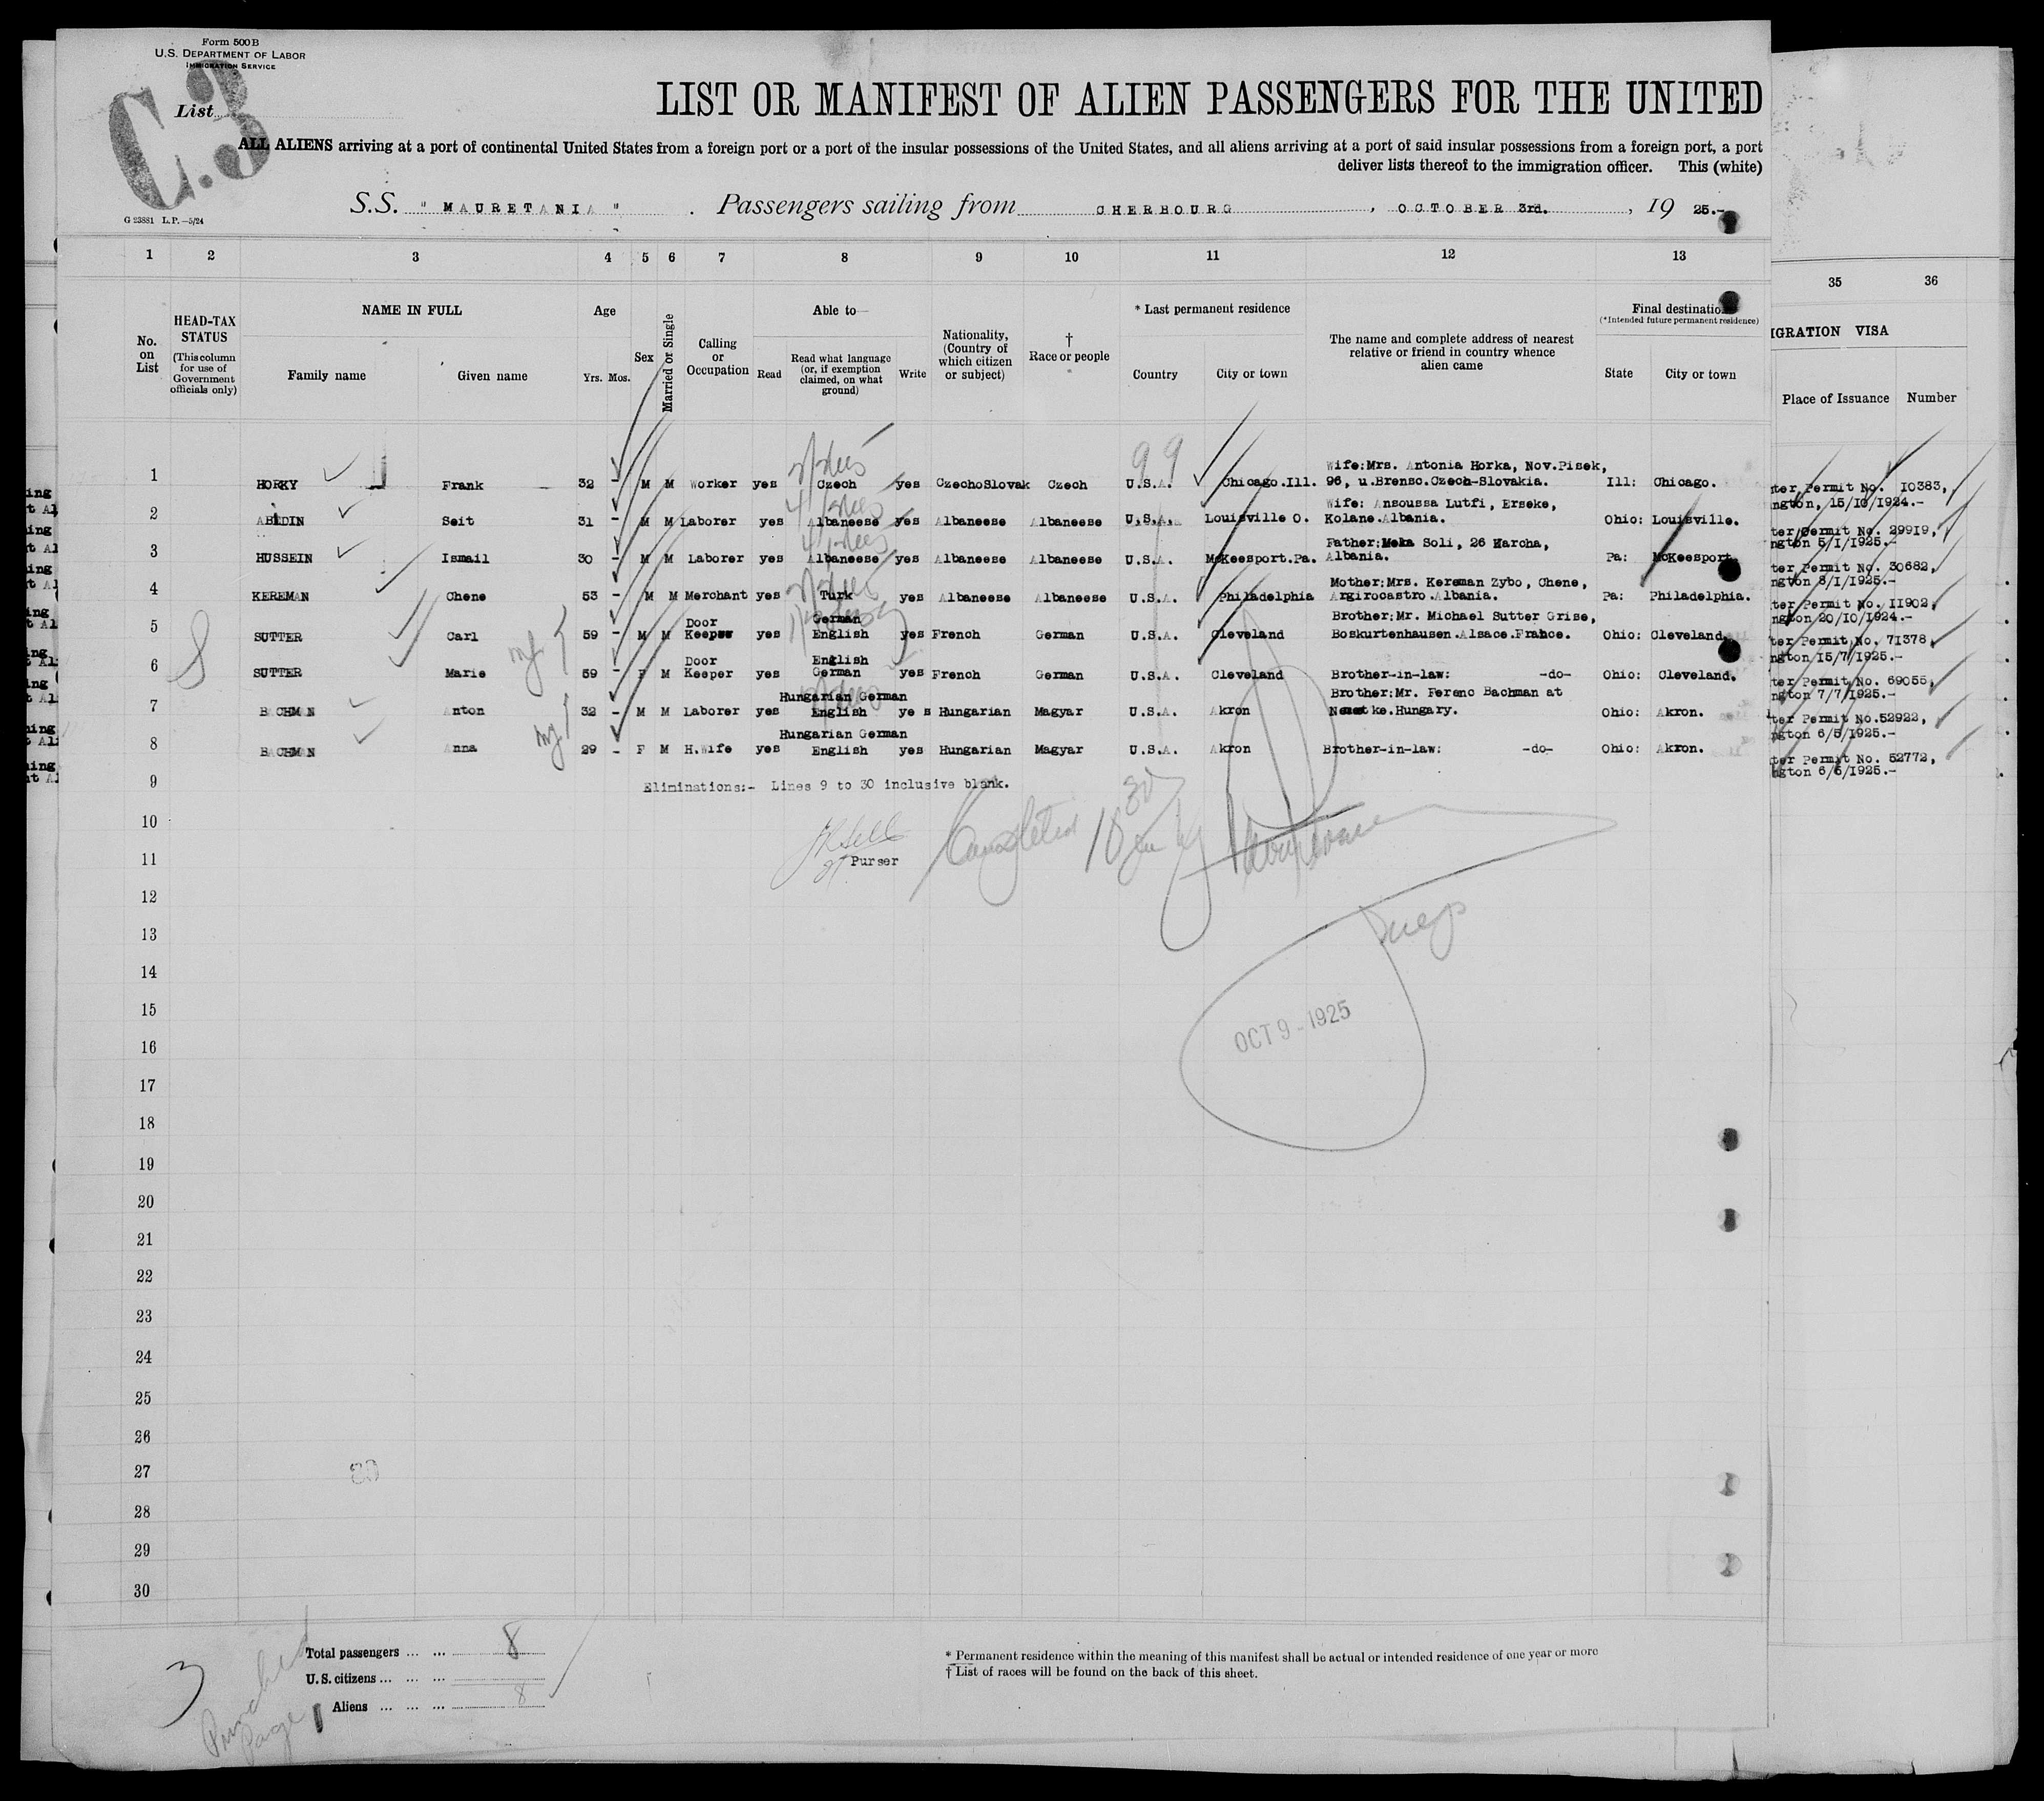 Form 500B
U.S. DEPARTMENT OF LABOR
IMMIGRATION SERVICE
C.3
List
LIST OR MANIFEST OF ALIEN PASSENGERS FOR THE UNITED
ALL ALIENS arriving at a port of continental United States from a foreign port or a port of the insular possessions of the United States, and all aliens arriving at a port of said insular possessions from a foreign port, a port
deliver lists thereof to the immigration officer. This (white)
S.S. "MAURETANIA" . Passengers sailing from CHERBOURG , OCTOBER 3rd. , 19 25.-
G 23881 L.P.—5/24
1 2 3 4 5 6 7 8 9 10 11 12 13
35 36
No. on List
HEAD-TAX STATUS
(This column for use of Government officials only)
NAME IN FULL
Family name Given name
Age
Yrs. Mos.
Sex
Married or Single
Calling or Occupation
Able to—
Read
Read what language (or, if exemption claimed, on what ground)
Write
Nationality, (Country of which citizen or subject)
† Race or people
* Last permanent residence
Country City or town
The name and complete address of nearest relative or friend in country whence alien came
Final destination
(*Intended future permanent residence)
State City or town
IGRATION VISA
Place of Issuance Number
99
Wife:Mrs. Antonia Horka, Nov.Pisek,
1 HORKY Frank 32 - M M Worker yes Czech yes CzechoSlovak Czech U.S.A. Chicago.Ill. 96, u.Brensc.Czech-Slovakia. Ill: Chicago.
ter Permit No. 10383,
ngton, 15/10/1924.-
Wife: Ansoussa Lutfi, Erseke,
2 ABEDIN Seit 31 - M M Laborer yes Albaneese yes Albaneese Albaneese U.S.A. Louisville O. Kolane.Albania. Ohio: Louisville.
ter Permit No. 29919,
ngton 5/1/1925.-
Father:Meka Soli, 26 Karcha,
3 HUSSEIN Ismail 30 - M M Laborer yes Albaneese yes Albaneese Albaneese U.S.A. McKeesport.Pa. Albania. Pa: McKeesport
ter Permit No. 30682,
ngton 8/1/1925.-
Mother:Mrs. Kereman Zybo, Chene,
4 KEREMAN Chene 53 - M M Merchant yes Turk yes Albaneese Albaneese U.S.A. Philadelphia Argirocastro.Albania. Pa: Philadelphia.
ter Permit No. 11902,
ngton 20/10/1924.-
Door German Brother:Mr. Michael Sutter Grise,
5 SUTTER Carl 59 - M M Keeper yes English yes French German U.S.A. Cleveland Boskurtenhausen.Alsace.France. Ohio: Cleveland.
ter Permit No. 71378,
ngton 15/7/1925.-
Door English
6 SUTTER Marie 59 - F M Keeper yes German yes French German U.S.A. Cleveland Brother-in-law: -do- Ohio: Cleveland.
ter Permit No. 69055,
ngton 7/7/1925.-
Hungarian German Brother:Mr. Ferenc Bachman at
7 BACHMAN Anton 32 - M M Laborer yes English yes Hungarian Magyar U.S.A. Akron Nemetke.Hungary. Ohio: Akron.
ter Permit No.52922,
ngton 6/5/1925.-
Hungarian German
8 BACHMAN Anna 29 - F M H.Wife yes English yes Hungarian Magyar U.S.A. Akron Brother-in-law: -do- Ohio: Akron.
ter Permit No. 52772,
ngton 6/5/1925.-
9 Eliminations:- Lines 9 to 30 inclusive blank.
10
Completed 10 30
11 Purser
12
13
14
15
OCT 9 - 1925
16
17
18
19
20
21
22
23
24
25
26
27
28
29
30
Total passengers ... ... 8
U.S. citizens ... ... ...
Aliens ... ... ... 8
3
Punched Page 1
* Permanent residence within the meaning of this manifest shall be actual or intended residence of one year or more
† List of races will be found on the back of this sheet.